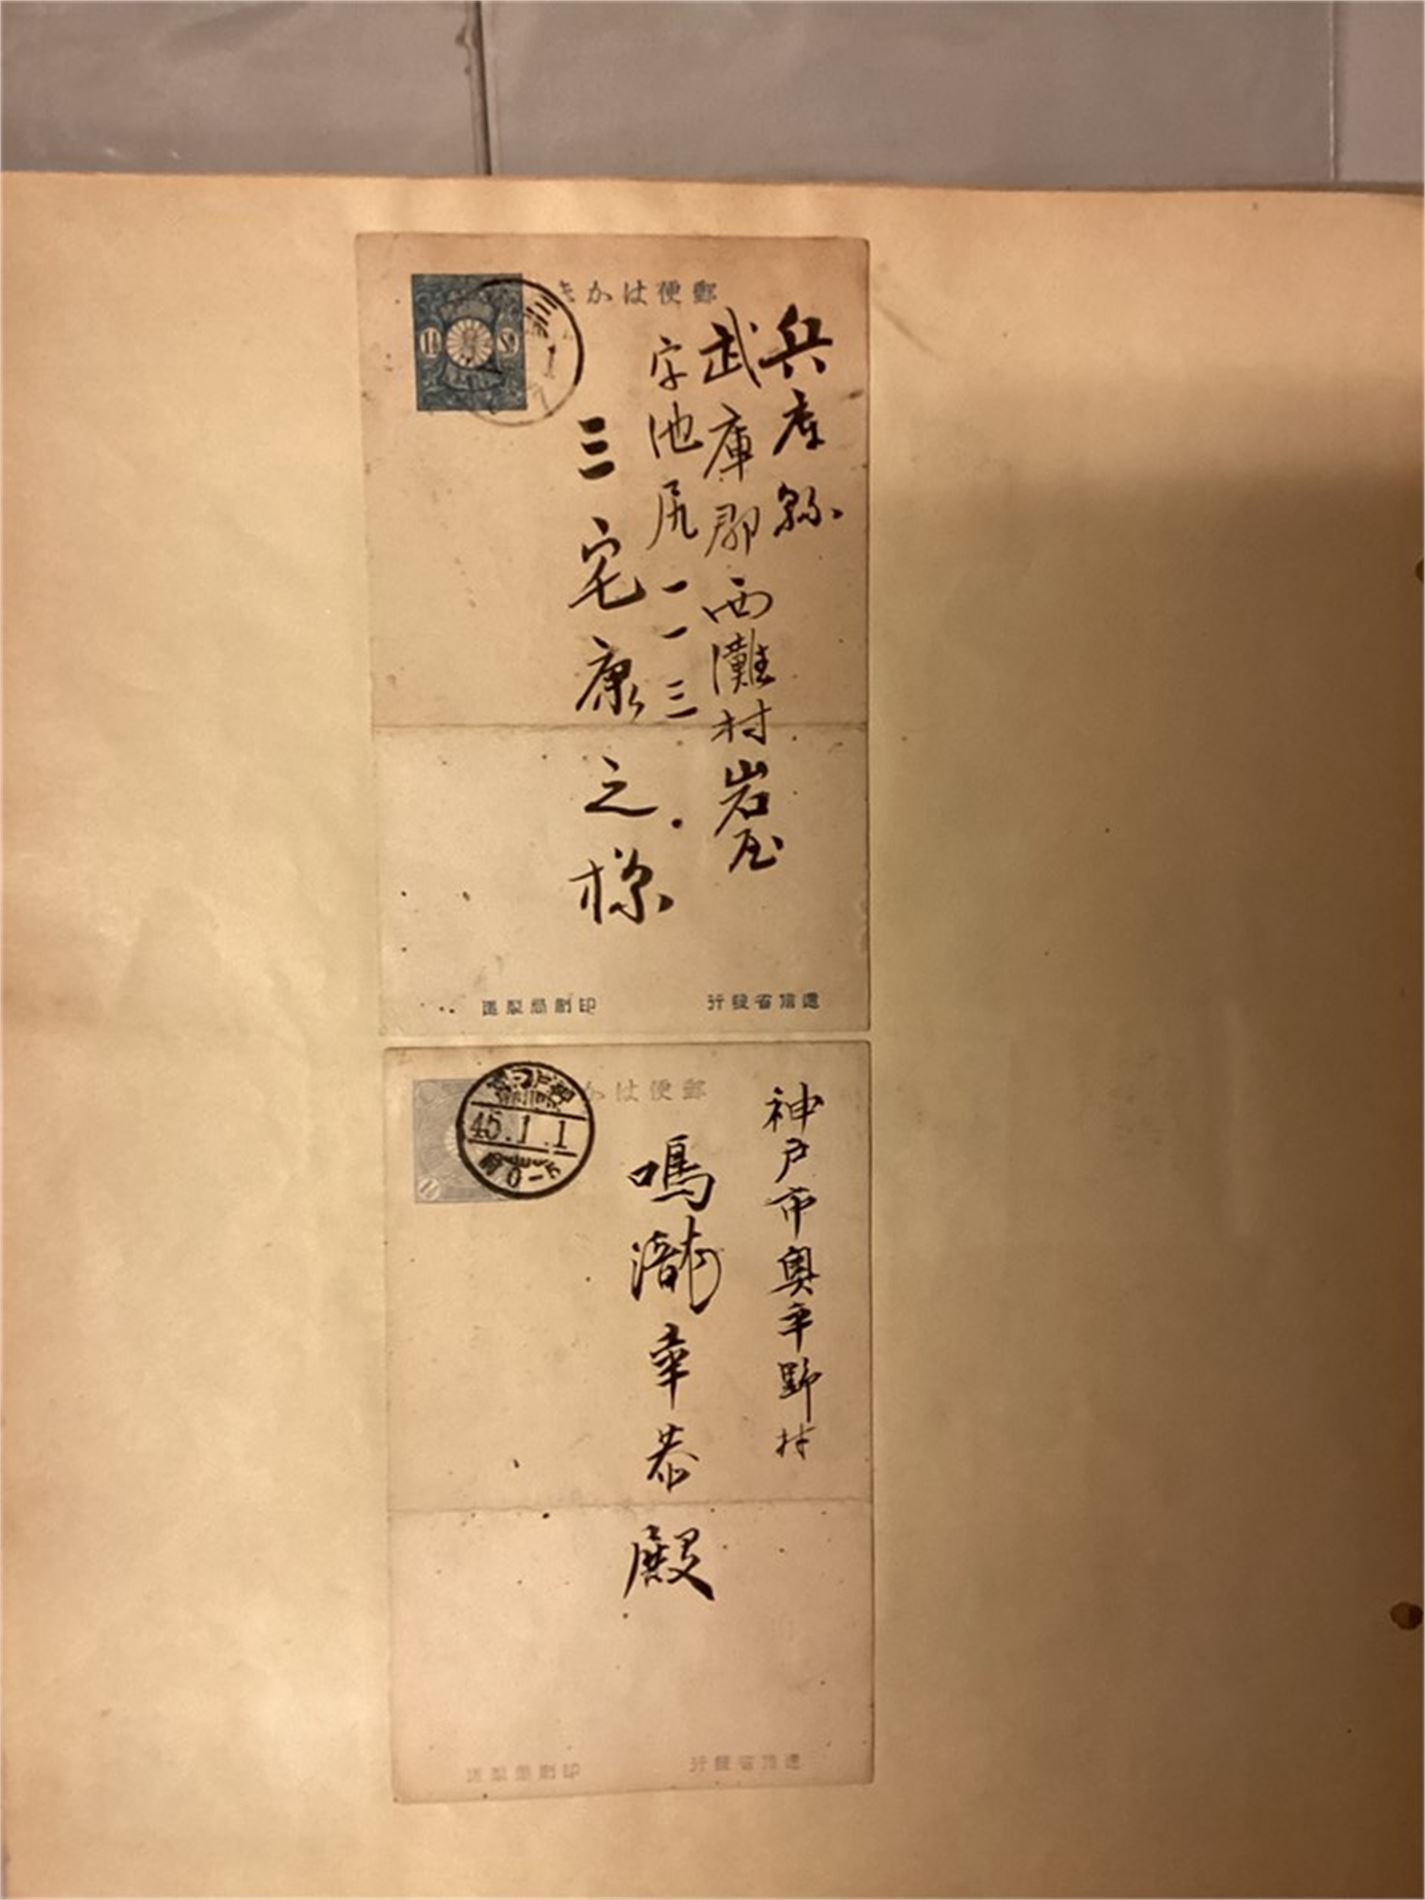 郵便はかき
兵庫縣
武庫郡西灘村岩屋
字池尻一一三
三宅康之様
逓信省發行
印刷局製造
郵便はか
45.1.1
神戸市奥平野村
鳴瀧幸恭殿
逓信省發行
印刷局製造